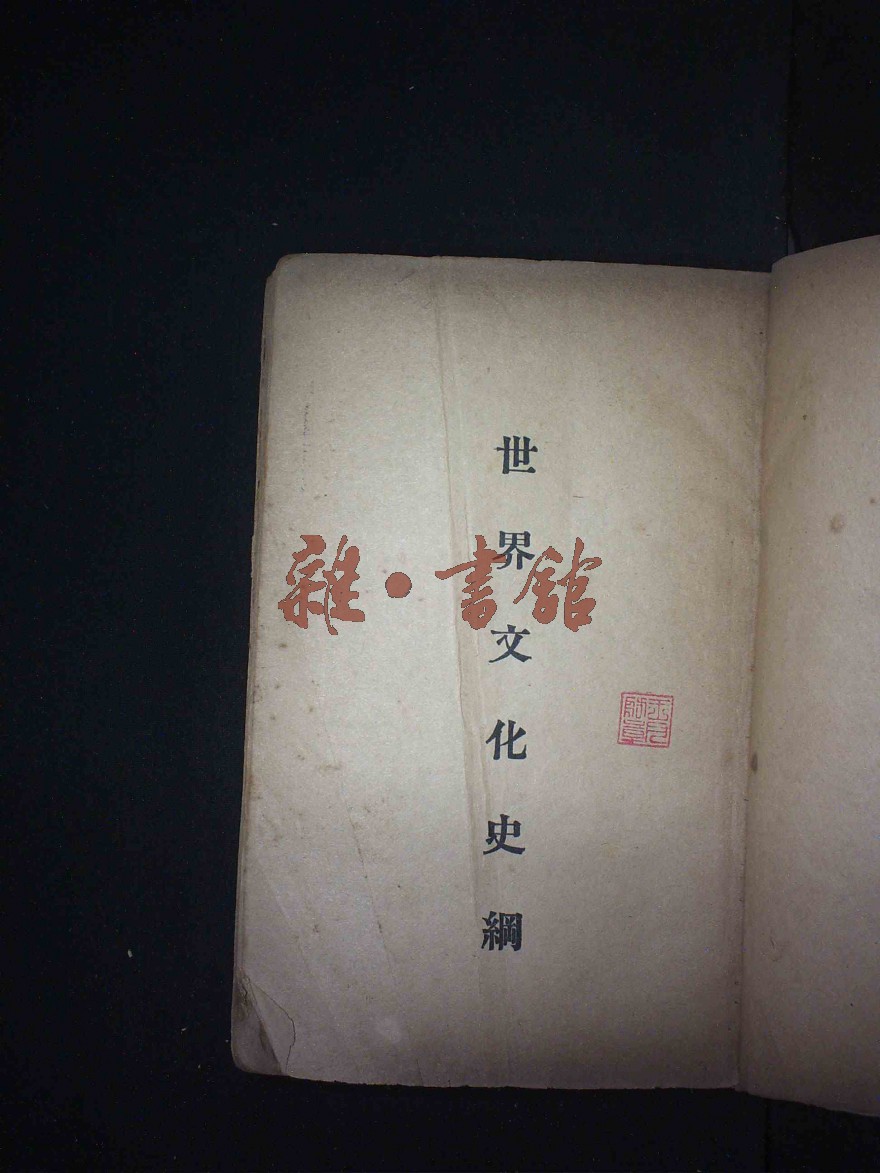 世界文化史綱
雜·書館